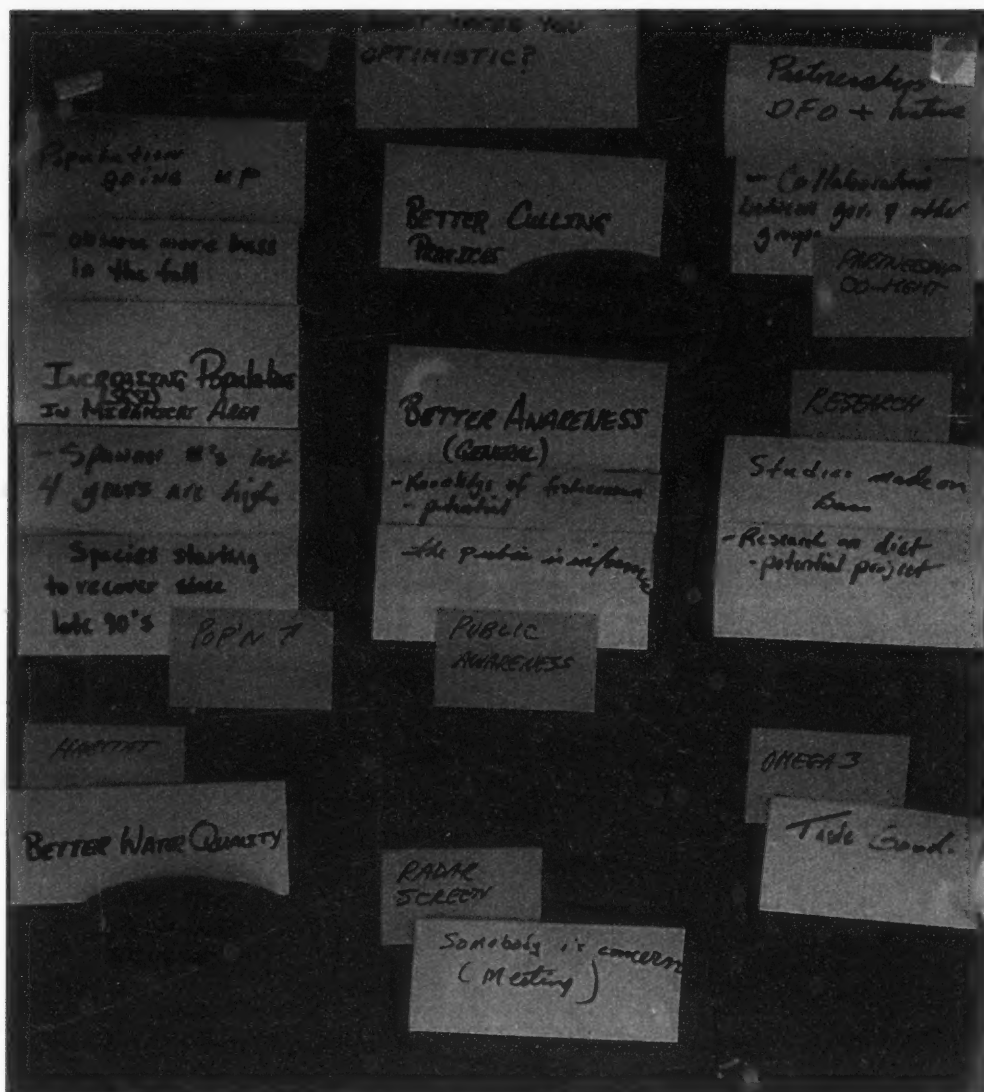 MAKES YOU
OPTIMISTIC?
Population
going up
- observe more bass
in the fall
INCREASING Population
IN MIRAMICHI AREA
- Spawner #'s last
4 years are high
Species starting
to recover since
late 90's
POP'N ↑
HABITAT
BETTER WATER QUALITY
BETTER CULLING
PRATICES
BETTER AWARENESS
(GENERAL)
- Knowledge of fisherman
- potential
- the public is informed
PUBLIC
AWARENESS
RADAR
SCREEN
Somebody is concern
(Meeting)
Partnership
DFO + Native
- Collaboration
between gov. & other
groups
PARTNERSHIP
CO-MGMT
RESEARCH
Studies made on
bass
- Research on diet
- potential project
OMEGA 3
Taste Good.